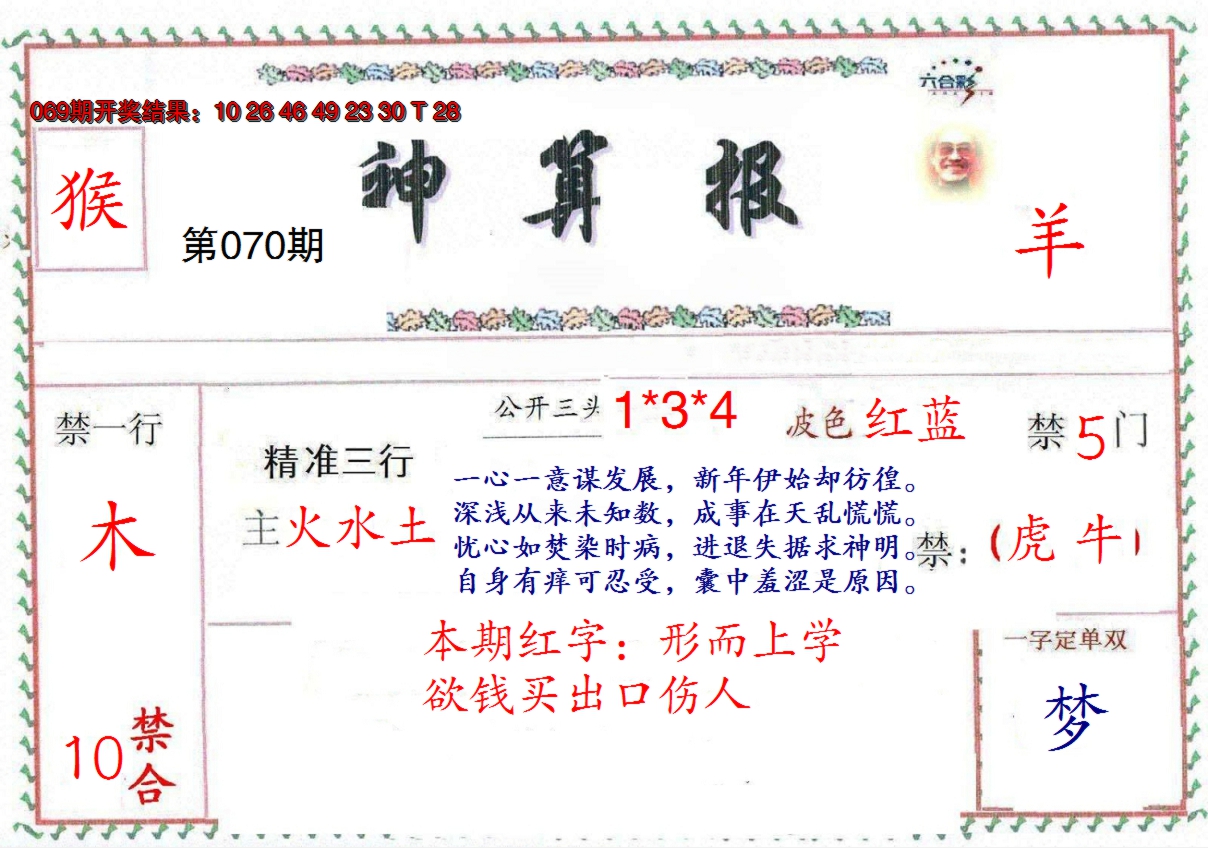 六合彩
069期开奖结果：10 26 46 49 23 30 T 28
神算报
猴
第070期
羊
禁一行
木
10禁合
精准三行
主火水土
公开三头 1*3*4
波色 红蓝
禁5门
一心一意谋发展，新年伊始却彷徨。
深浅从来未知数，成事在天乱慌慌。
忧心如焚染时病，进退失据求神明。
自身有痒可忍受，囊中羞涩是原因。
禁：（虎 牛）
本期红字：形而上学
欲钱买出口伤人
一字定单双
梦